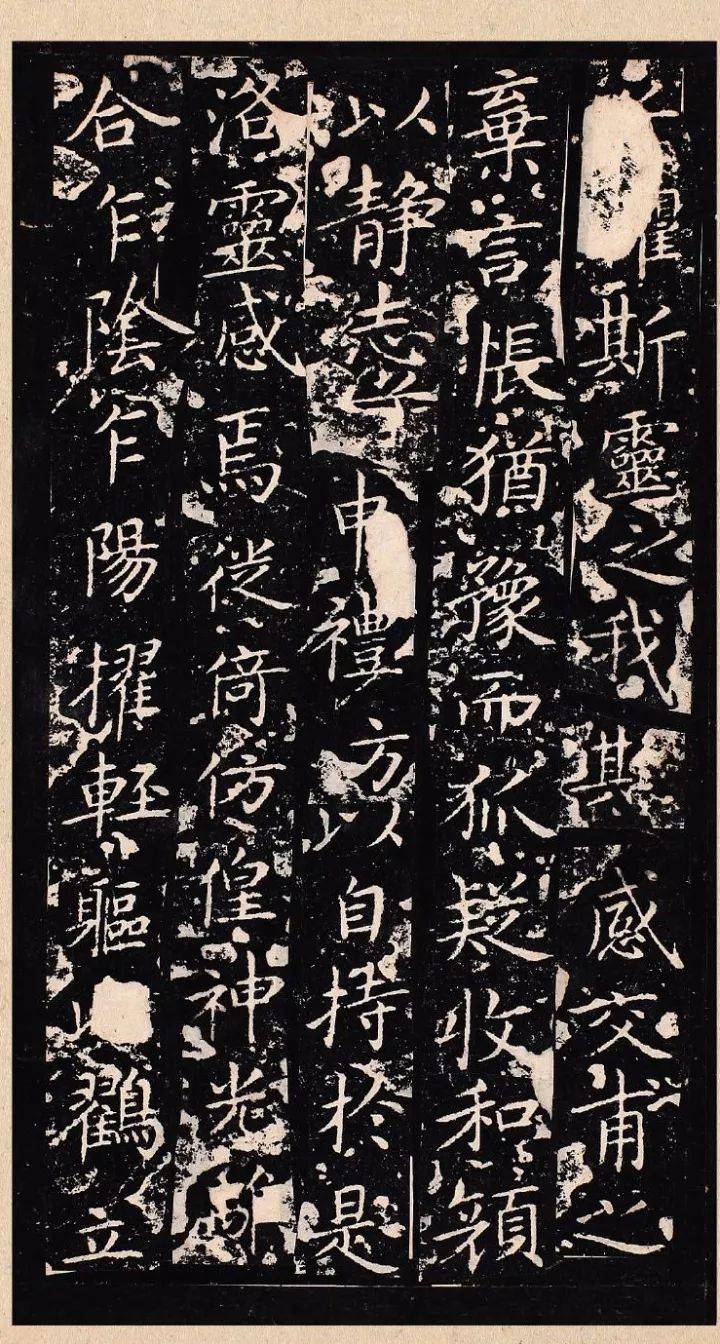 懼斯靈之我欺感交甫之
棄言悵猶豫而狐疑收和顏
以静志兮申禮方以自持於是
洛靈感焉徙倚仿偟神光
合乍陰乍陽擢輕軀以鶴立